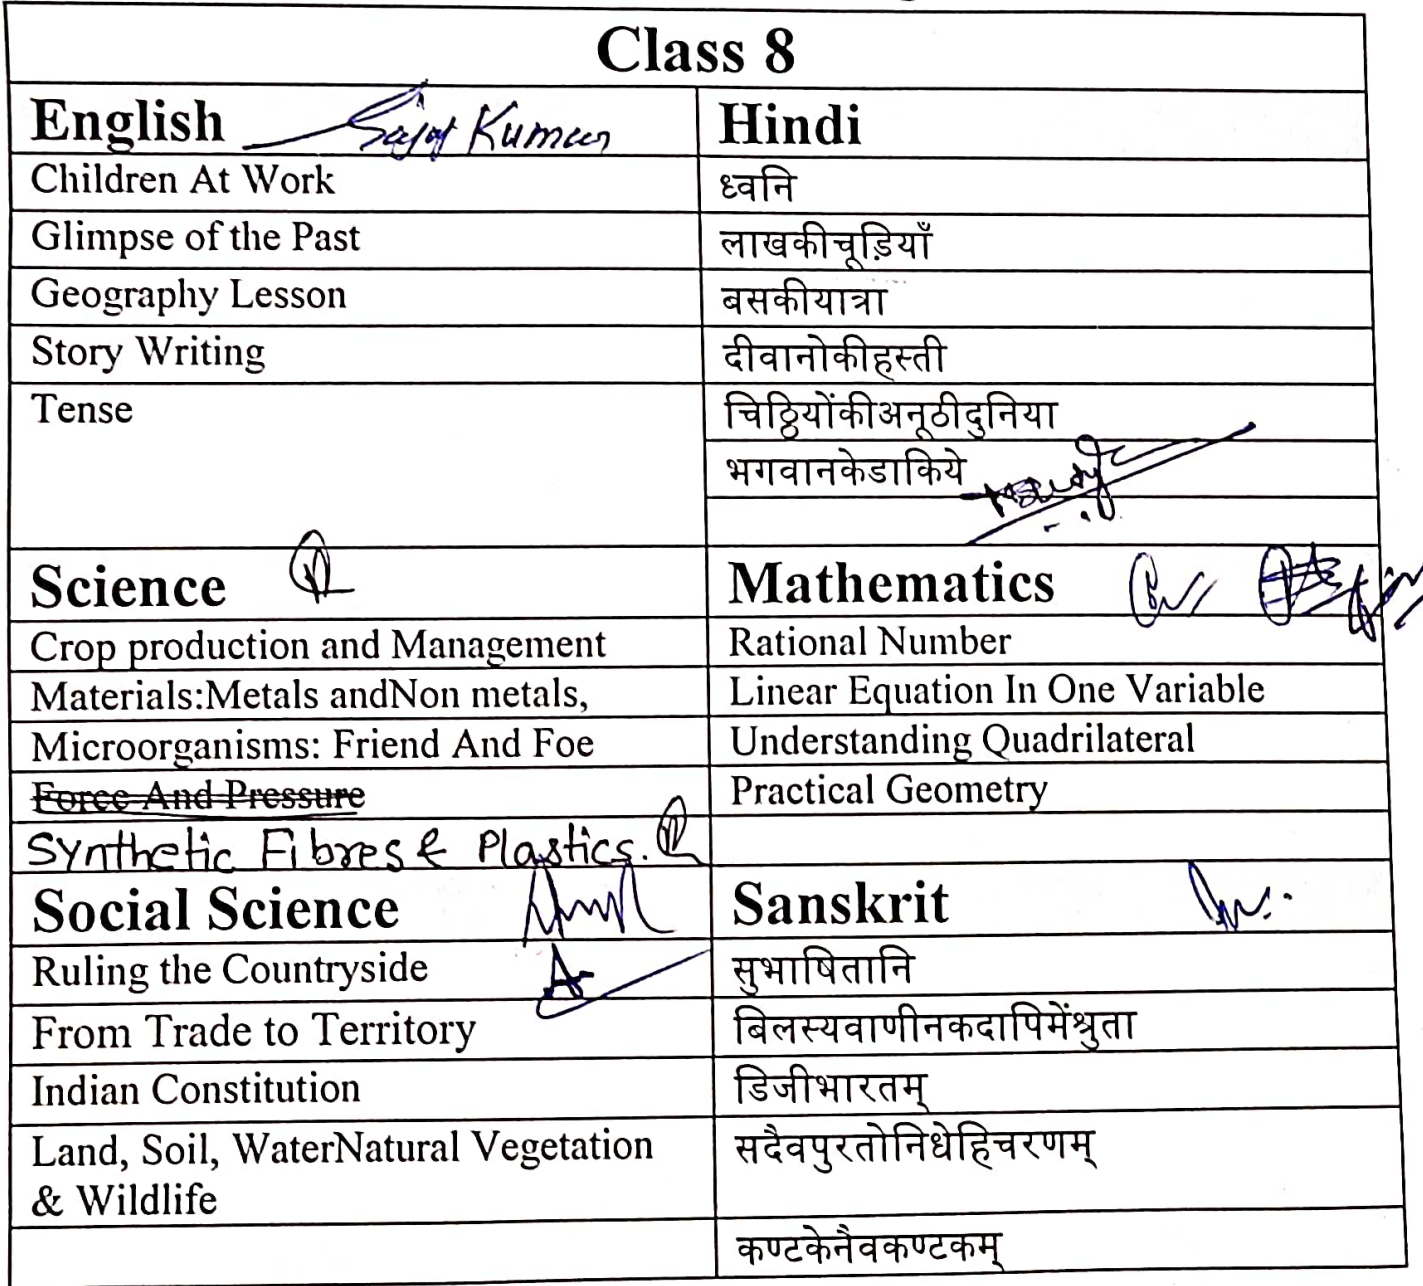 Class 8
English Kumar
Hindi
Children At Work
ध्वनि
Glimpse of the Past
लाखकीचूड़ियाँ
Geography Lesson
बसकीयात्रा
Story Writing
दीवानोकीहस्ती
Tense
चिठ्ठियोंकीअनूठीदुनिया
भगवानकेडाकिये
Science
Mathematics
Crop production and Management
Rational Number
Materials:Metals andNon metals,
Linear Equation In One Variable
Microorganisms: Friend And Foe
Understanding Quadrilateral
Force And Pressure
Practical Geometry
Synthetic Fibres & Plastics.
Social Science
Sanskrit
Ruling the Countryside
सुभाषितानि
From Trade to Territory
बिलस्यवाणीनकदापिमेंश्रुता
Indian Constitution
डिजीभारतम्
Land, Soil, WaterNatural Vegetation
& Wildlife
सदैवपुरतोनिधेहिचरणम्
कण्टकेनैवकण्टकम्